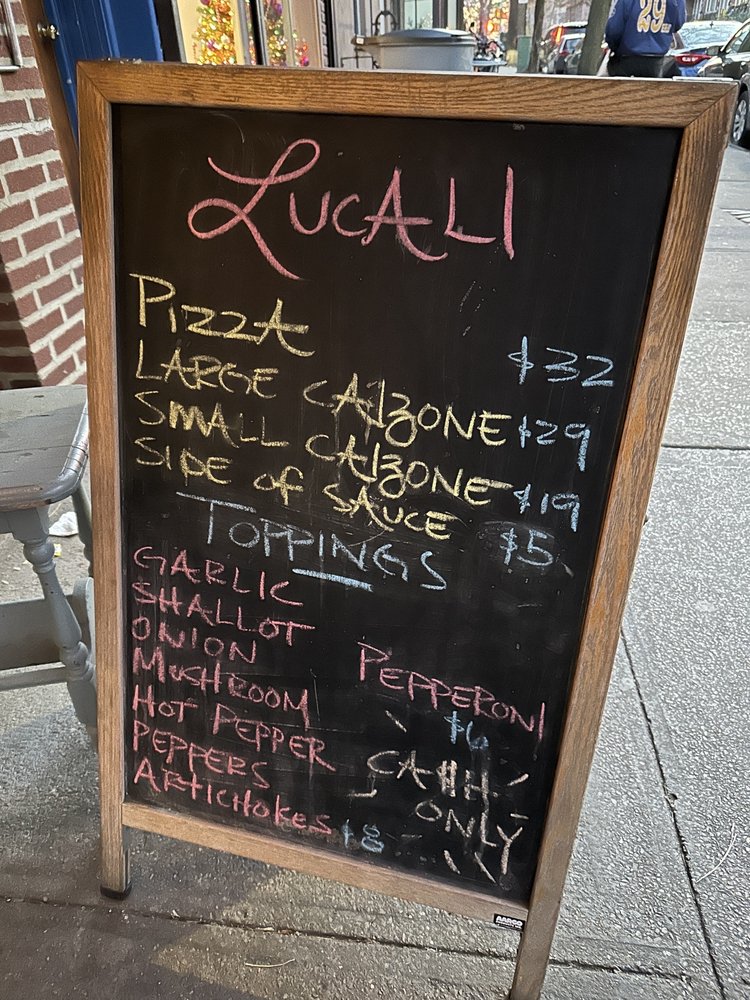 LUCALI
PIZZA $32
LARGE CALZONE $29
SMALL CALZONE $19
SIDE OF SAUCE $5
TOPPINGS
GARLIC
SHALLOT
ONION
MUSHROOM
HOT PEPPER
PEPPERS
ARTICHOKES $8
PEPPERONI
$6
CA$H
ONLY
AARCO
29